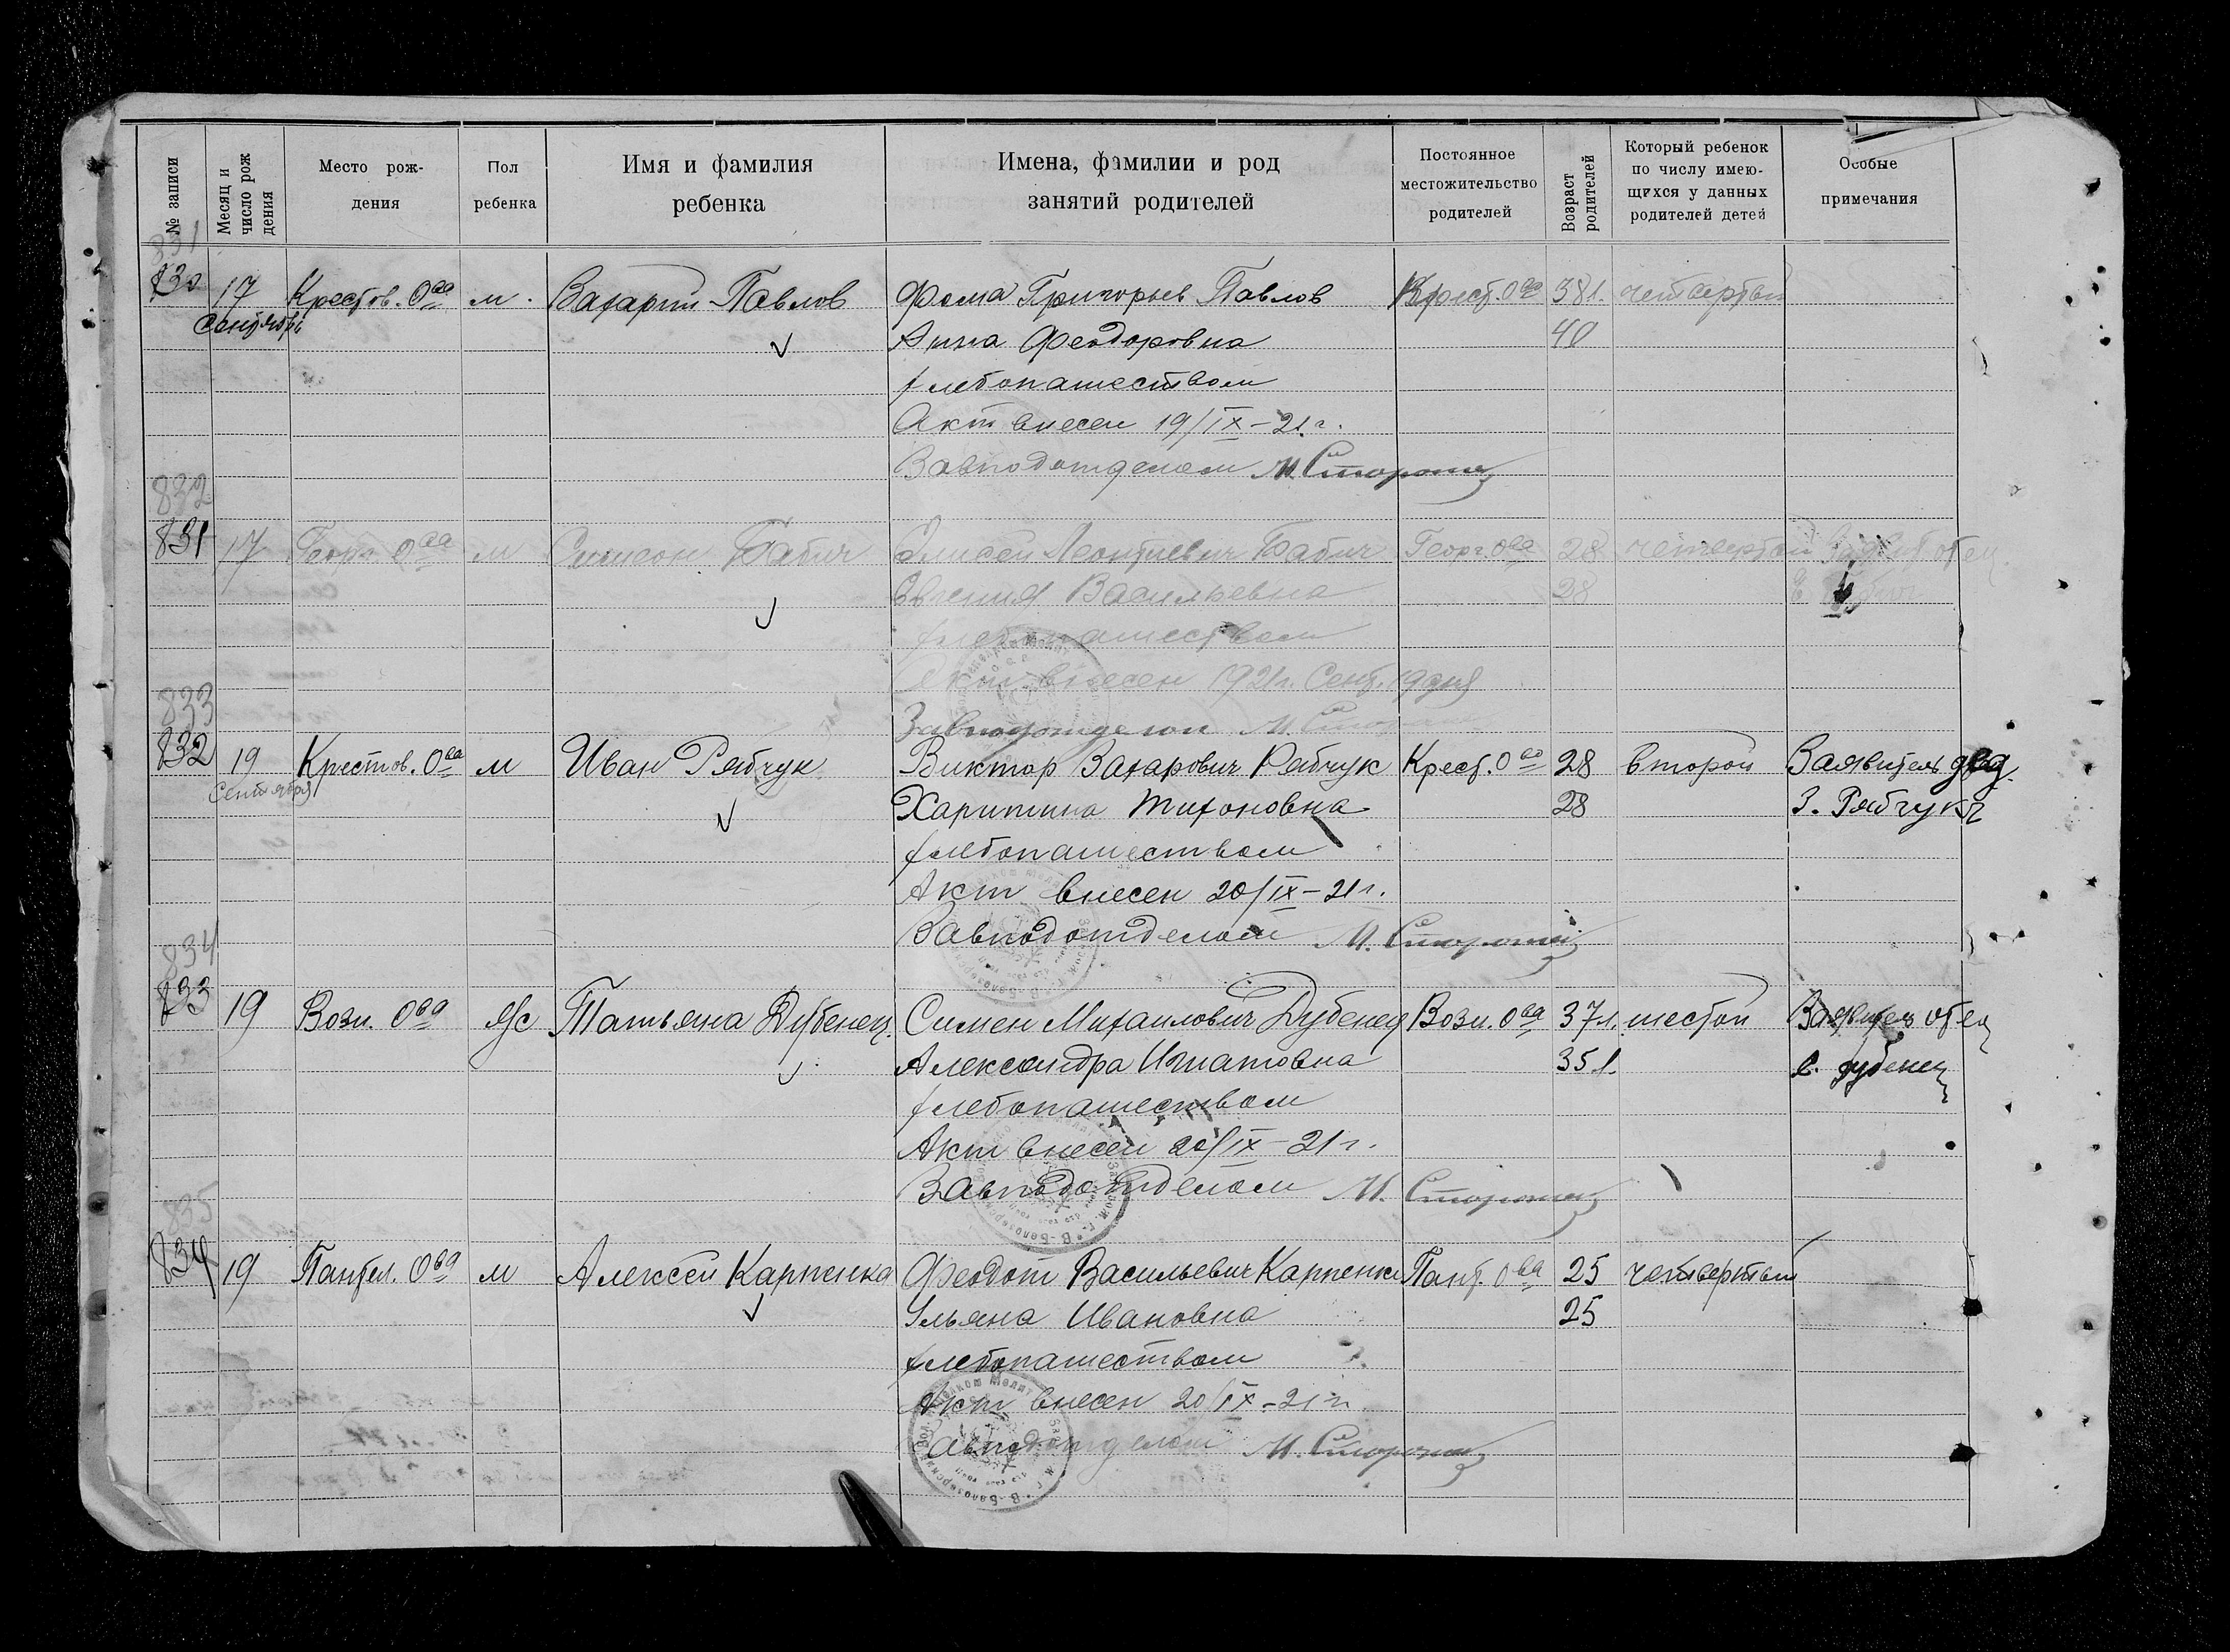 № записи
Месяц и число рождения
Место рождения
Пол ребенка
Имя и фамилия ребенка
Имена, фамилии и род занятий родителей
Постоянное местожительство родителей
Возраст родителей
Который ребенок по числу имеющихся у данных родителей детей
Особые примечания
831
830 17 Крестов. Ова м. Захарий Павлов Фома Григорьев Павлов Крест. Ова 38 л. четвертый
Сентября Анна Феодоровна 40
хлебопашеством
Акт внесен 19/IX-21 г.
Завподотделом М. Сторожец
832
831 17 Георг. Ова м Симеон Бабич Елисей Леонтиевич Бабич Георг. Ова 28 четвертый Заявит. отец
Евгения Васильевна 28
хлебопашеством
Акт внесен 1921 г. Сент. 19 дня
Завподотделом М.
833
832 19 Крестов. Ова м Иван Рябчук Виктор Захарович Рябчук Крест. Ова 28 второй Заявитель дед.
Сентября Харитина Тихоновна 28 З. Рябчук
хлебопашеством
Акт внесен 20/IX-21 г.
Завподотделом М. Сторожец
834
833 19 Возн. Ова ж Татьяна Дубенец Симен Михаилович Дубенец Возн. Ова 37 л. шестой Заявитель отец
Александра Игнатовна 35 л. С. Дубенец
хлебопашеством
Акт внесен 20/IX-21 г.
Завподотделом М. Сторожец
835
834 19 Пантел. Ова м Алексей Карпенко Феодот Васильевич Карпенко Пант. Ова 25 четвертый
Ульяна Ивановна 25
хлебопашеством
Акт внесен 20/IX-21 г.
Завподотделом М. Сторожец